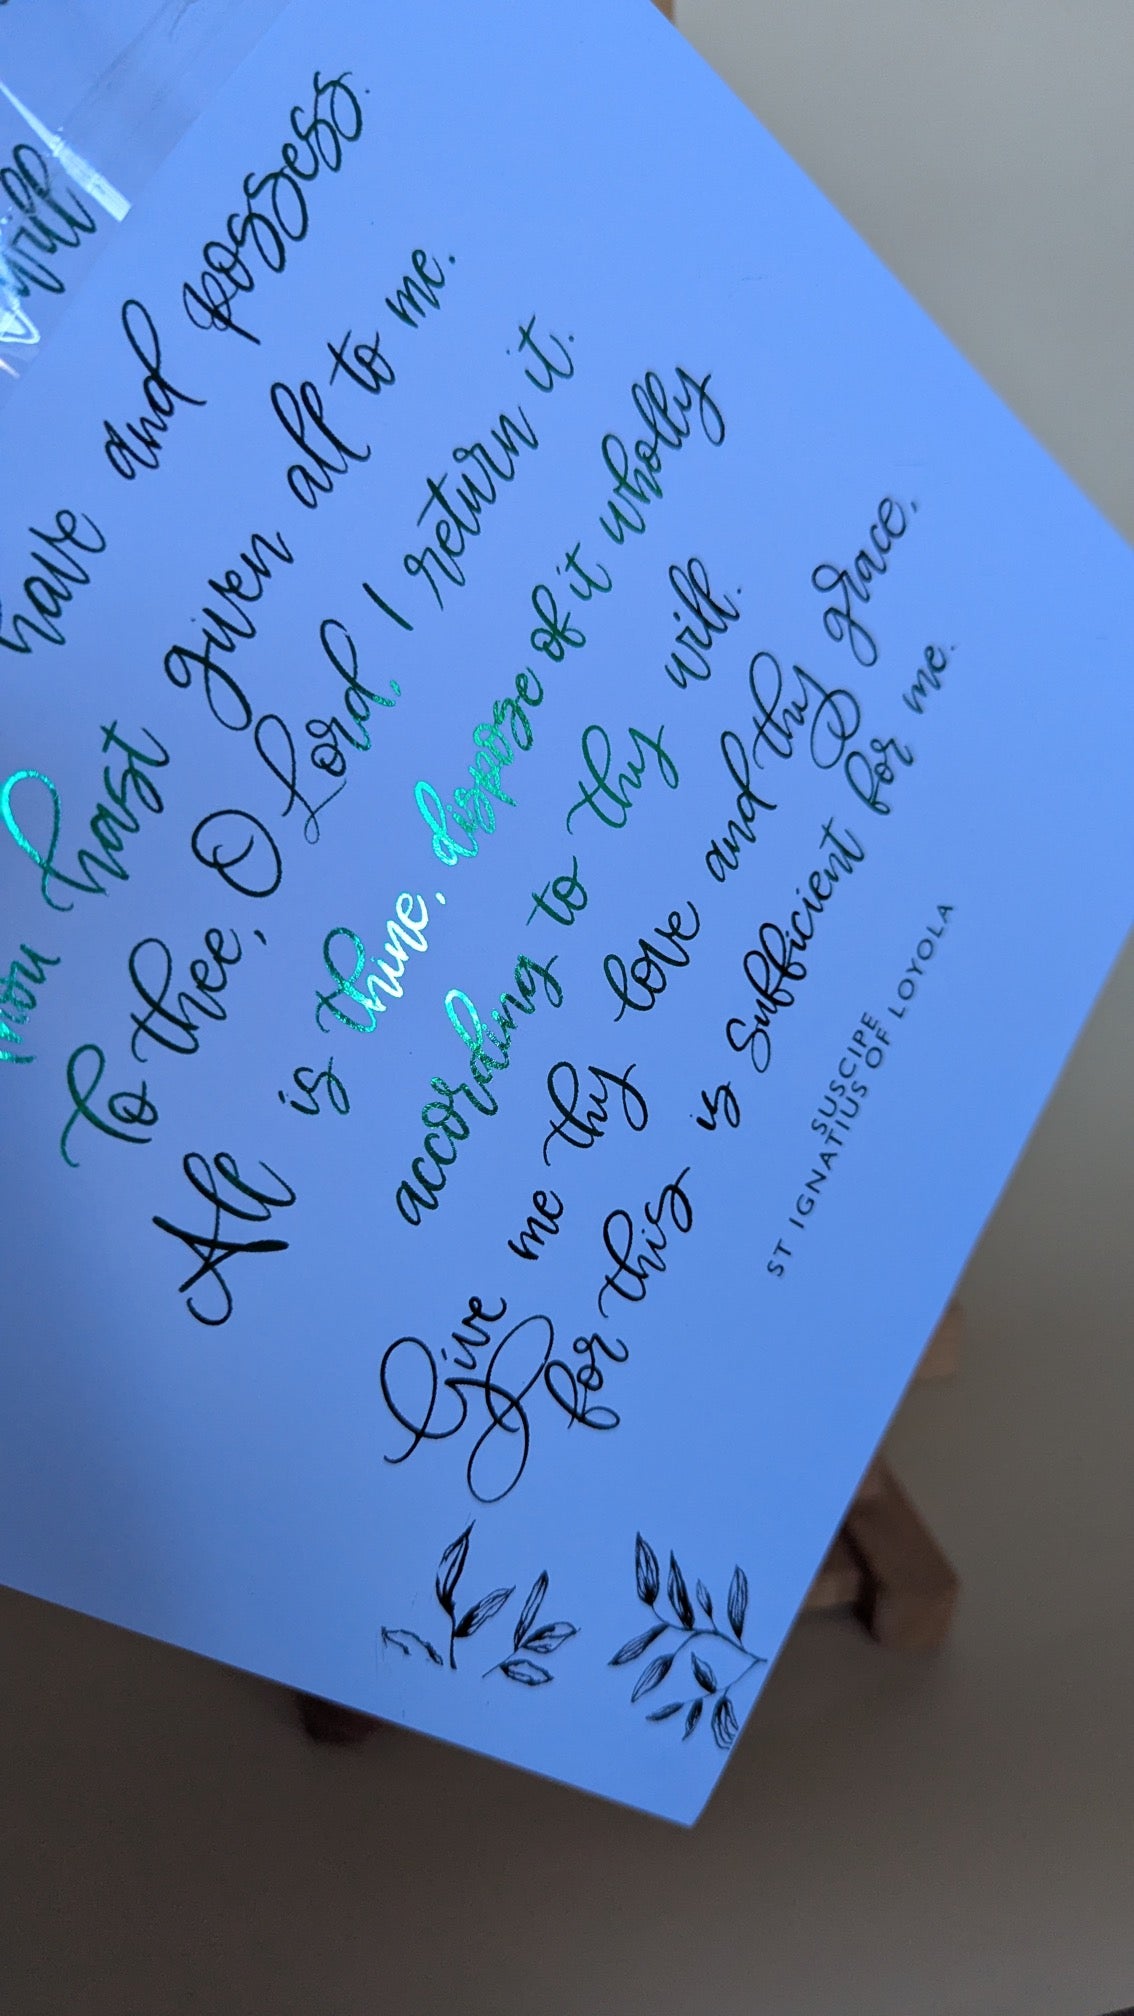 will
have and possess.
hast given all to me.
To thee, O Lord, I return it.
All is thine, dispose of it wholly
according to thy will.
Give me thy love and thy grace,
for this is sufficient for me.
SUSCIPE
ST IGNATIUS OF LOYOLA